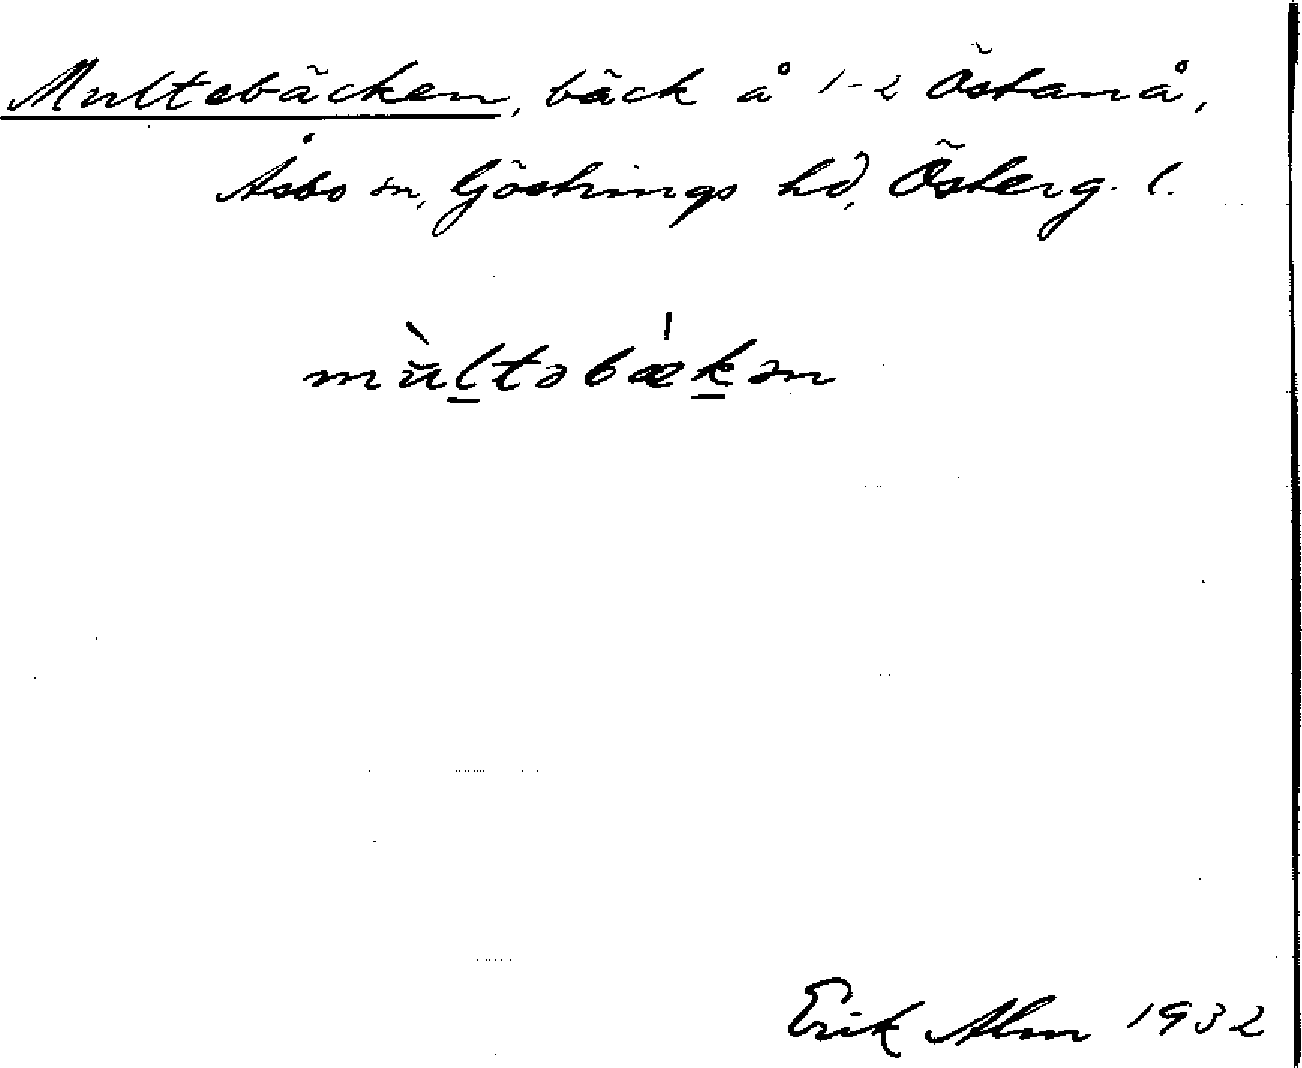 Multebäcken, bäck å 1-2 Östanå,
Åsbo sn, Göstrings hd, Österg. l.
mùltəbækən
Erik Alm 1932